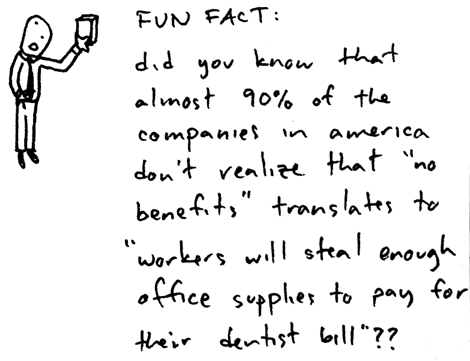 FUN FACT:
did you know that
almost 90% of the
companies in america
don't realize that "no
benefits" translates to
"workers will steal enough
office supplies to pay for
their dentist bill"??